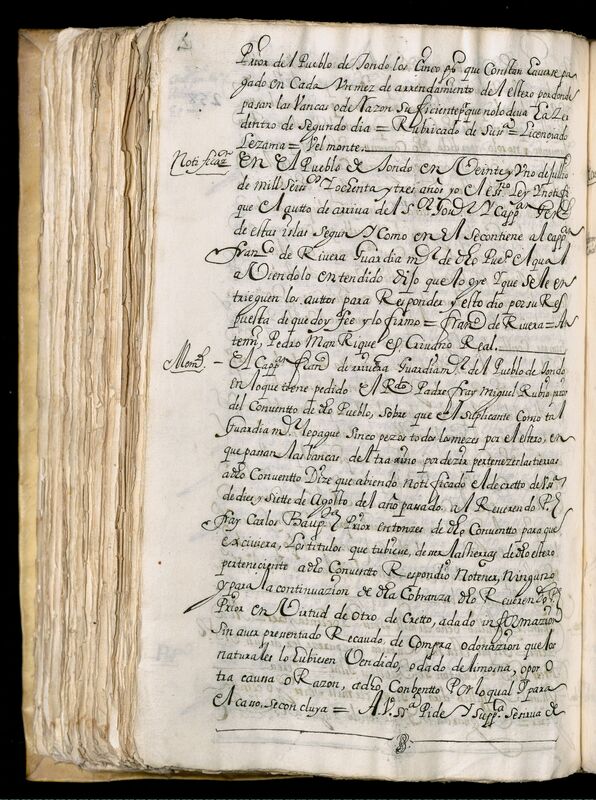 Prior del Pueblo de tondo los Cinco ps que Constan hauerse pa
gado en Cada Un mez de arrendamiento del estero por donde
pasan las Vancas o de Razon suficiente que no lo deva hazer
dentro de segundo dia = Rubricado de su ssa = Licenciado
Lezama = Velmonte.
Notificazon En El Pueblo de tondo en Veinte y Vno de Jullio
de mill Seiscos Y ochenta y tres años yo el essno Ley Y notifi
que El autto de arriva del Sor Gour Y Cappan Genl
de estas islas Segun Y Como en El se contiene al cappan
franco de Rivera Guardia mor de dho Pueo el qual
aViendolo entendido dijo que lo oye Y que se le en
trieguen los auttos para Responder y esto dio por su Res
puesta de que doy fee y lo firmo = Franco de Rivera = An
temi, Pedro ManRique Escriuano Real.
Meml. – El Cappan franco de rriuera Guardia mor del Pueblo de tondo
en lo que tiene pedido El Rdo Padre fray Miguel Rubio prior
del Conventto de dho Pueblo, sobre que el Suplicante Como tal
Guardia mor le pague Sinco pezos todos los mezes por el estero, en
que passan las bancas del tra xino por dezir pertenezer las tierras
a dho Conventto Dize que abiendo notificado el decretto de Vssa
de diez y Siette de Agosto del año passado. al Reverendo Pe
fray Carlos Baupta Prior entonzes de dho Conventto para que
exciviera, Los titulos que tubiese, de ser las tierras de dho estero
perteneciente a dho Conventto Respondio Notener, Ninguno
Y para la continuazion de dha Cobranza dho Reverendo Pe
Prior en Virtud de otro decretto, a dado informazion
Sin auer presentado Recaudo, de Compra o donazion que los
naturales lo hubiesen Vendido, o dado de limosna, o por o
tra caussa o Razon, a dho, Conbentto Por lo qual Y para
el casso. se concluya = A V. Ssa Pide Y Suppca Se sirua de